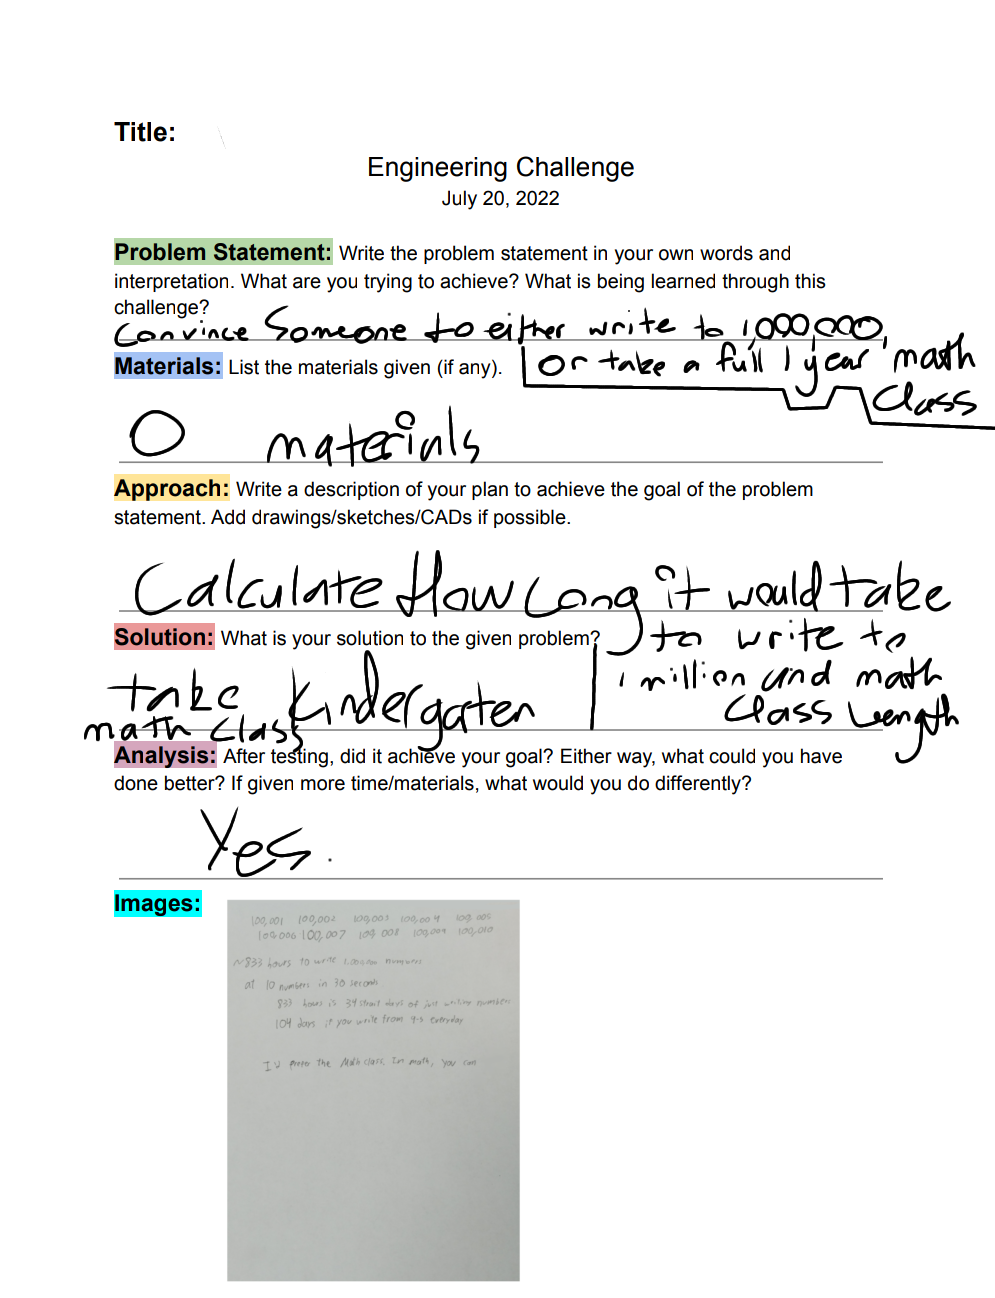 Title:
Engineering Challenge
July 20, 2022
Problem Statement: Write the problem statement in your own words and
interpretation. What are you trying to achieve? What is being learned through this
challenge?
Convince Someone to either write to 1,000,000,
or take a full 1 year math
Class
Materials: List the materials given (if any).
0 materials
Approach: Write a description of your plan to achieve the goal of the problem
statement. Add drawings/sketches/CADs if possible.
Calculate How Long it would take
to write to
1 million and math
Class Length
Solution: What is your solution to the given problem?
take Kindergarten
math Class
Analysis: After testing, did it achieve your goal? Either way, what could you have
done better? If given more time/materials, what would you do differently?
Yes.
Images:
100,001 100,002 100,003 100,004 100,005
100,006 100,007 100,008 100,009 100,010
~833 hours to write 1,000,000 numbers
at 10 numbers in 30 seconds
833 hours is 34 strait days of just writing numbers
104 days if you write from 9-5 everyday
prefer the Math class. In math, you can